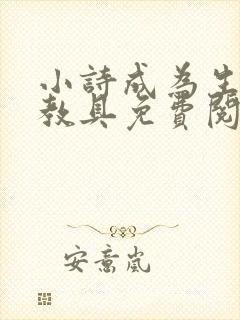 小詩成為生
教具免費閱
安意嵐